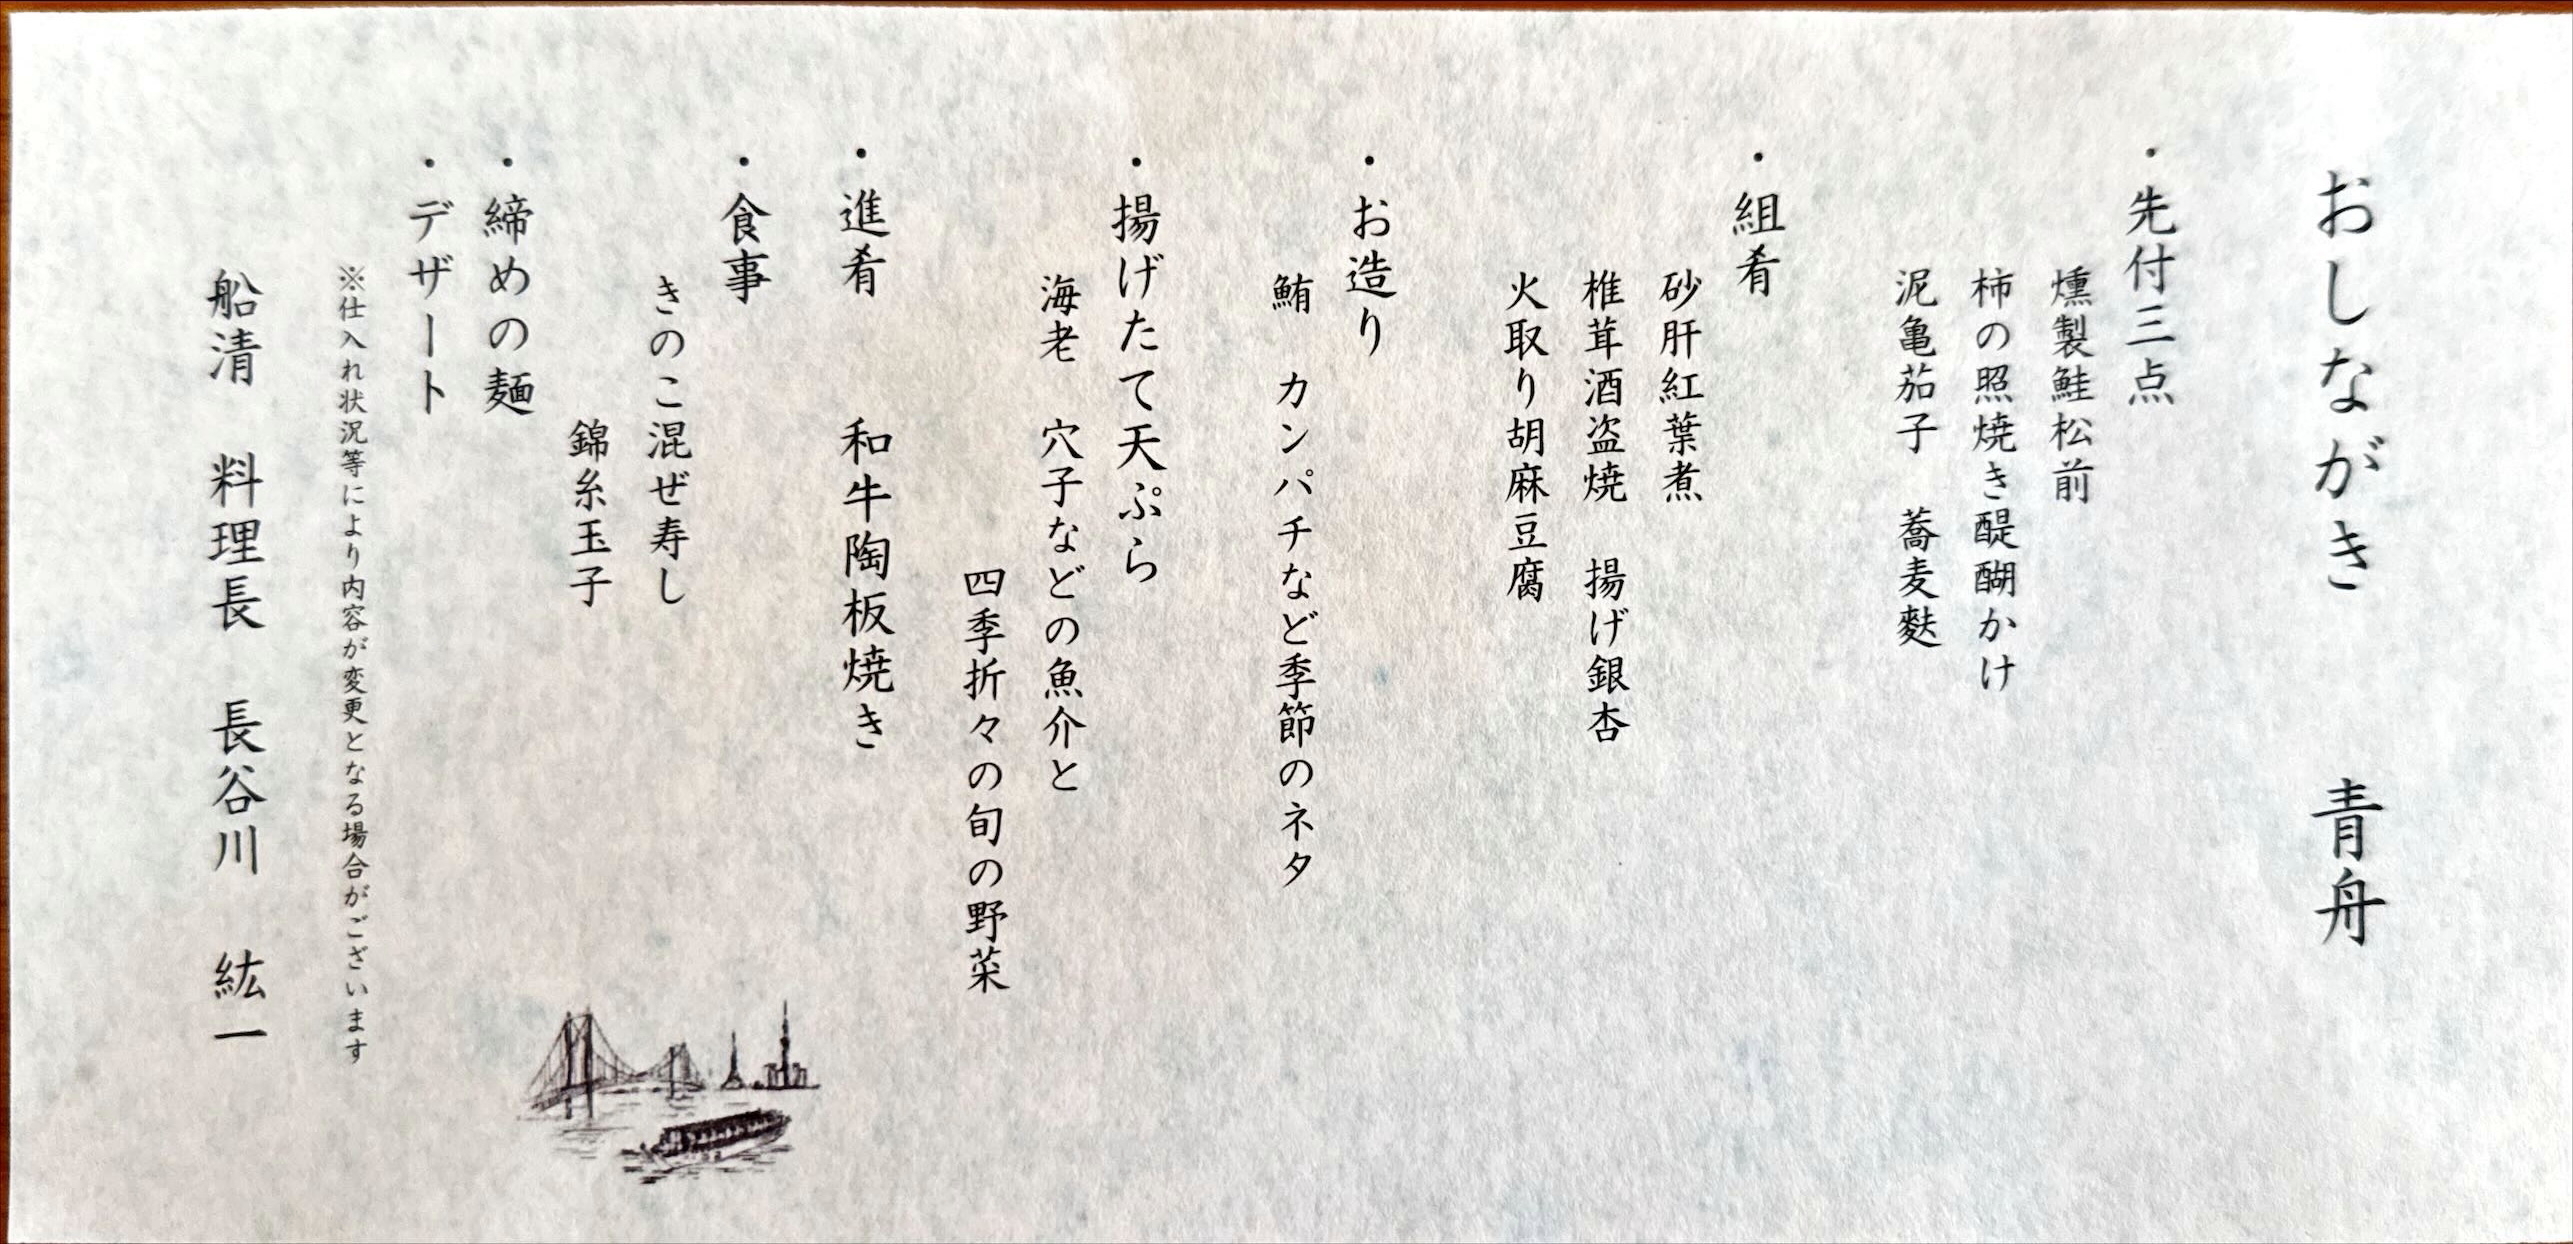 おしながき　青舟
・先付三点
燻製鮭松前
柿の照焼き醍醐かけ
泥亀茄子　蕎麦麩
・組肴
砂肝紅葉煮
椎茸酒盗焼　揚げ銀杏
火取り胡麻豆腐
・お造り
鮪　カンパチなど季節のネタ
・揚げたて天ぷら
海老　穴子などの魚介と
四季折々の旬の野菜
・進肴　和牛陶板焼き
・食事
きのこ混ぜ寿し
錦糸玉子
・締めの麺
・デザート
※仕入れ状況等により内容が変更となる場合がございます
船清　料理長　長谷川　紘一